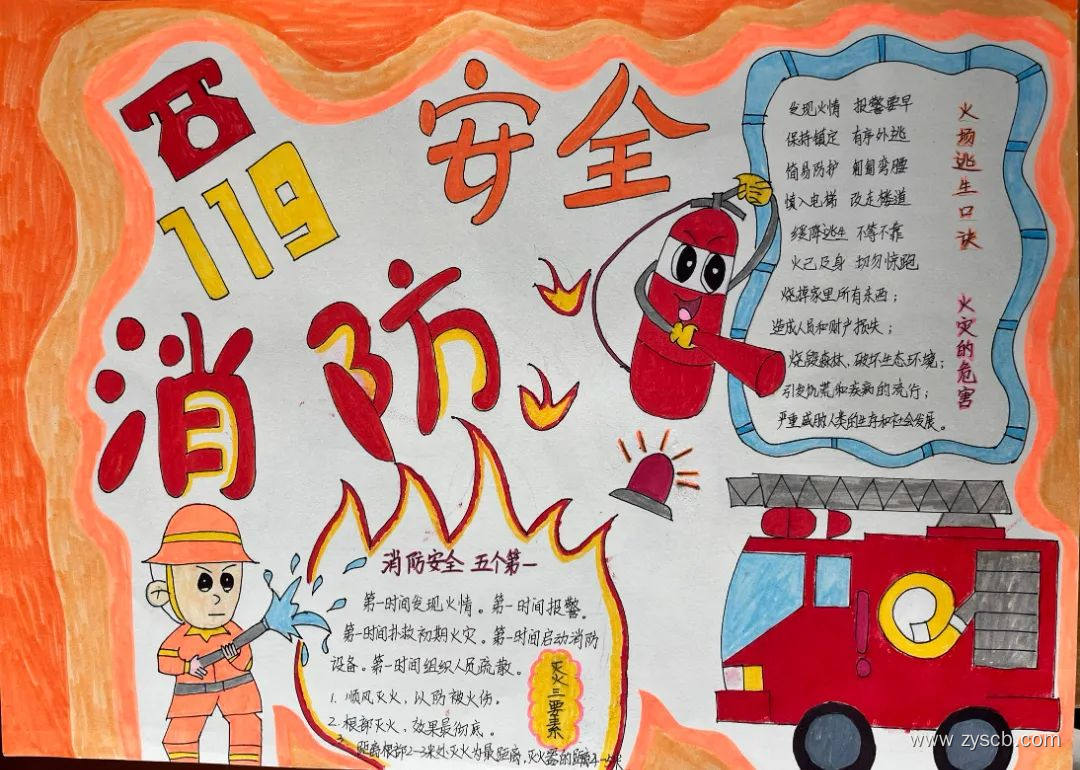 119
安全
消防
火场逃生口诀
发现火情 报警要早
保持镇定 有序外逃
简易防护 匍匐弯腰
慎入电梯 改走楼道
缓降逃生 不等不靠
火已及身 切勿惊跑
火灾的危害
烧掉家里所有东西；
造成人员和财产损失；
烧毁森林、破坏生态环境；
引发饥荒和疾病的流行；
严重威胁人类的生存和社会发展。
消防安全 五个第一
第一时间发现火情。第一时间报警。
第一时间扑救初期火灾。第一时间启动消防
设备。第一时间组织人员疏散。
灭火三要素
1. 顺风灭火，以防被火伤。
2. 根部灭火，效果最彻底。
3. 距离根部2-3米处灭火为最距离，灭火器的距离
www.zyscb.com